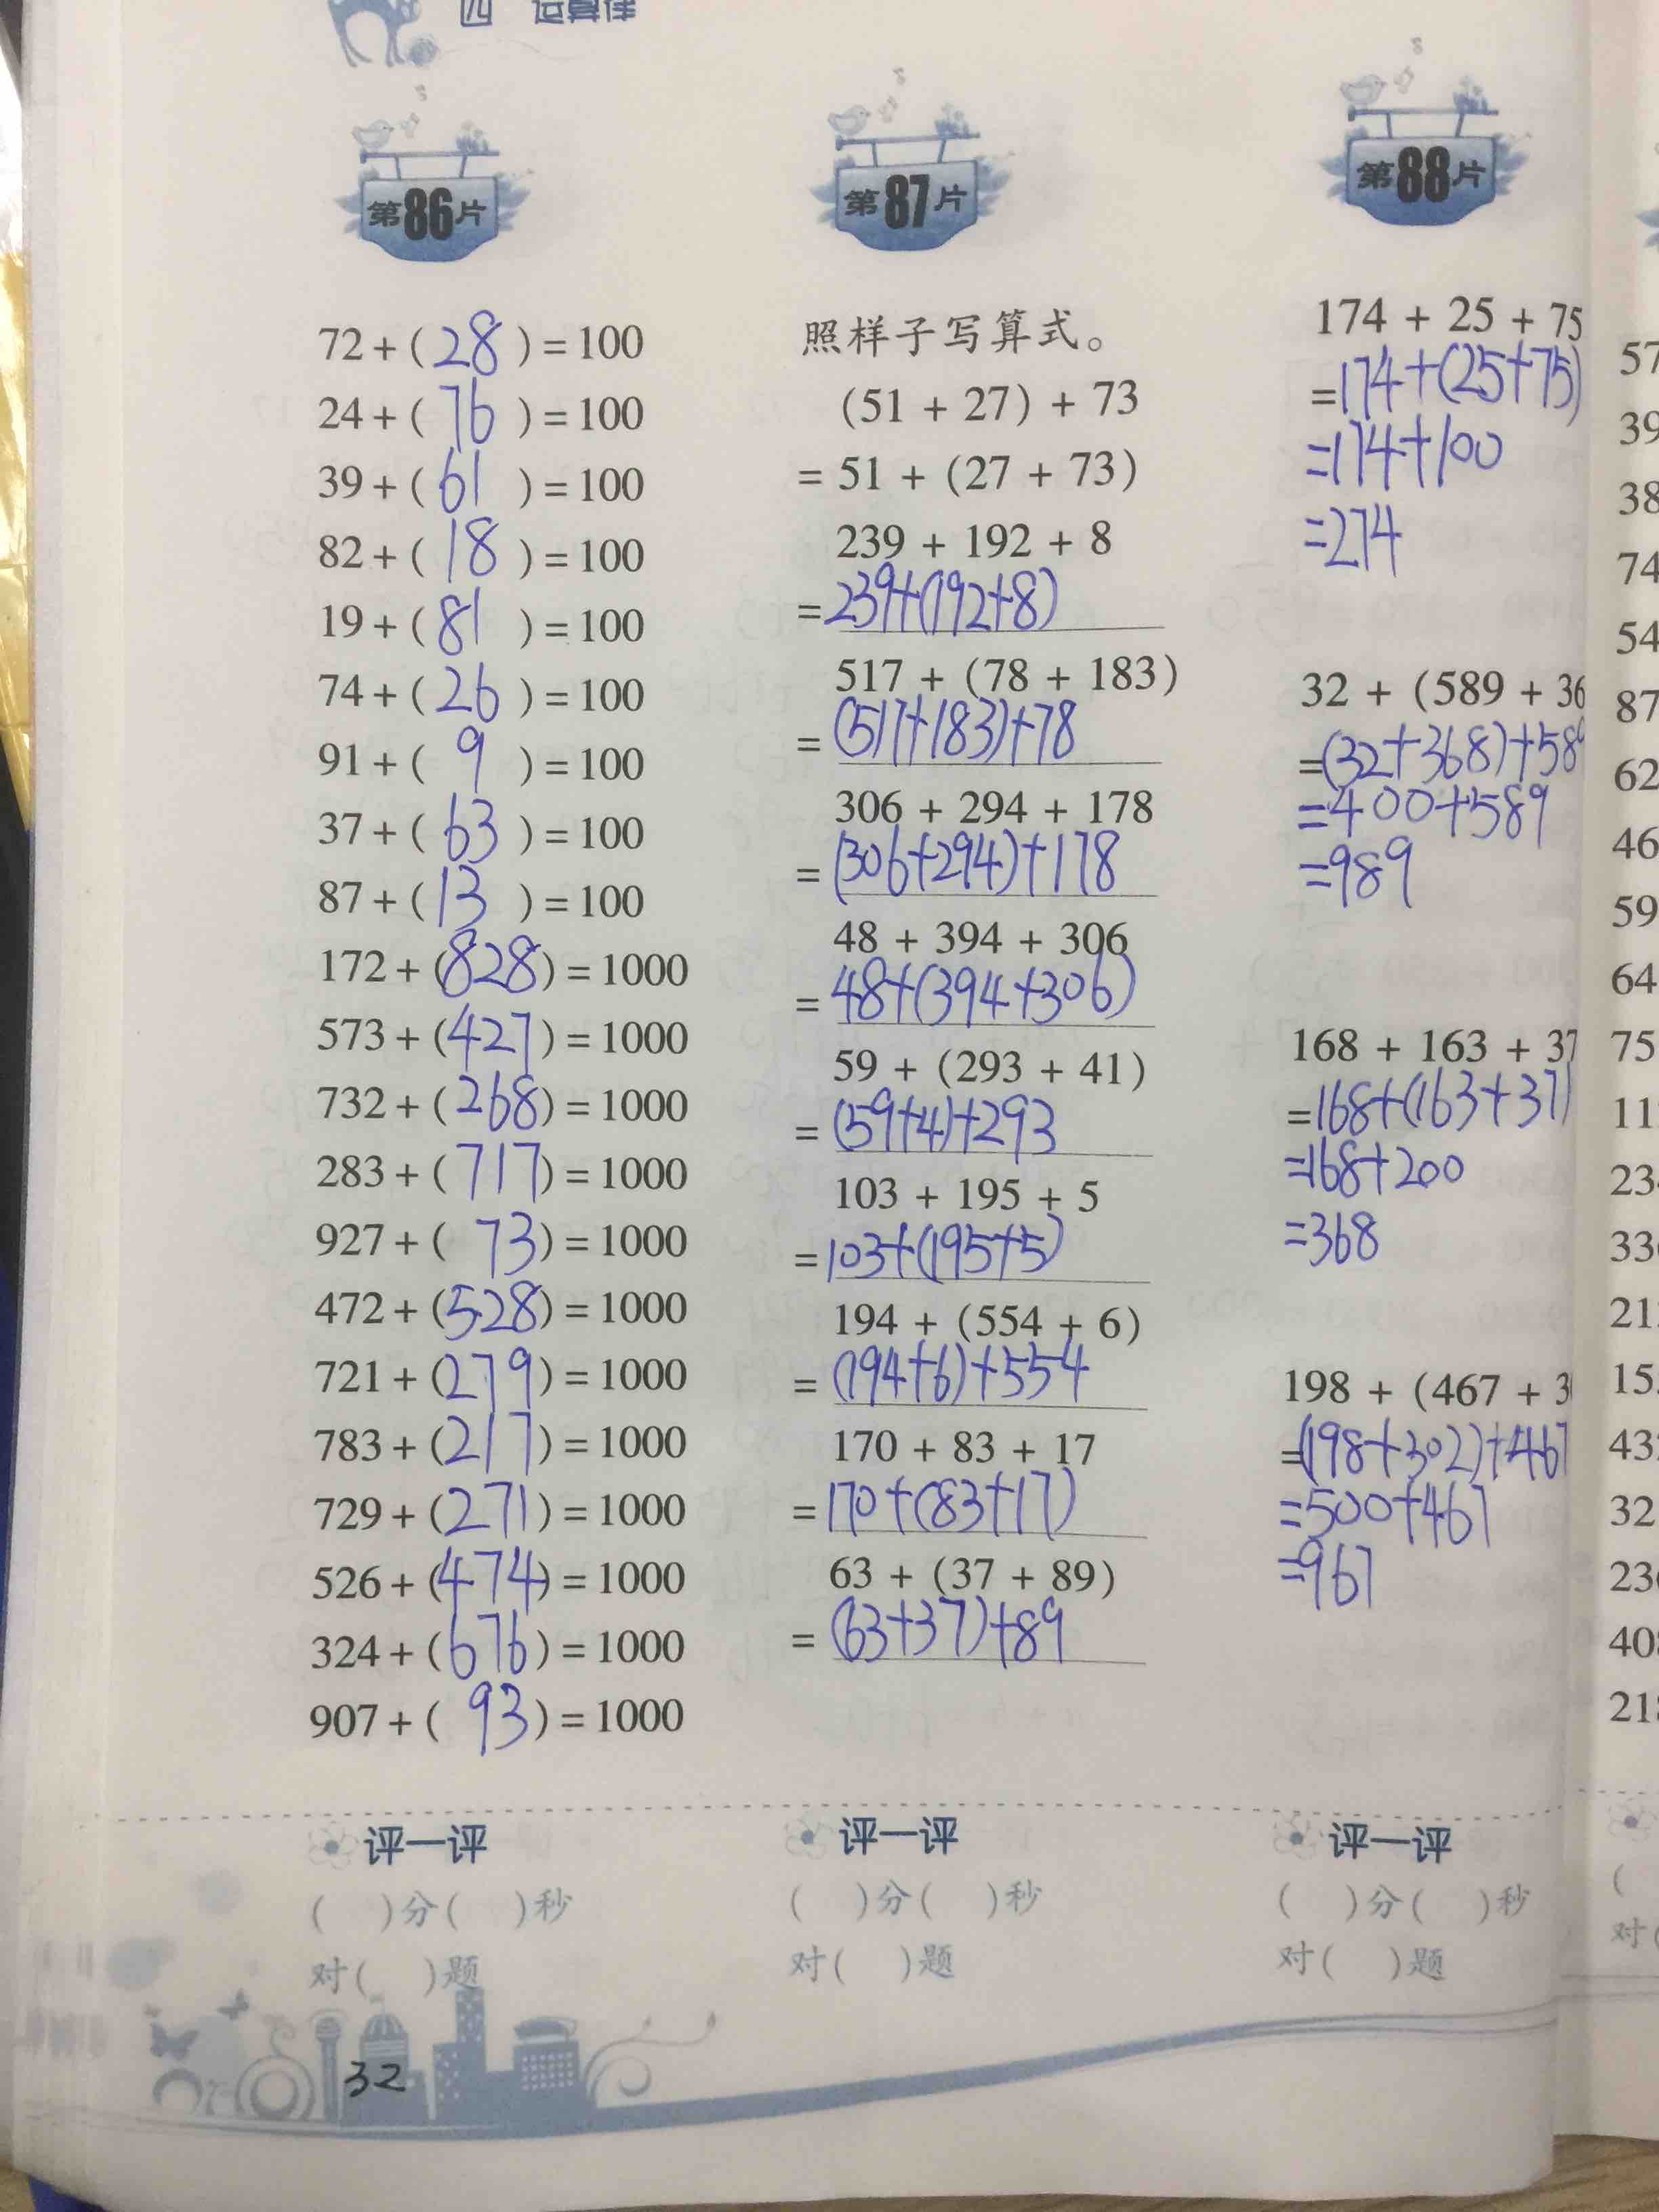 四 运算律
第86片
72+(28)=100
24+(76)=100
39+(61)=100
82+(18)=100
19+(81)=100
74+(26)=100
91+(9)=100
37+(63)=100
87+(13)=100
172+(828)=1000
573+(427)=1000
732+(268)=1000
283+(717)=1000
927+(73)=1000
472+(528)=1000
721+(279)=1000
783+(217)=1000
729+(271)=1000
526+(474)=1000
324+(676)=1000
907+(93)=1000
评一评
( )分( )秒
对( )题
第87片
照样子写算式。
(51 + 27) + 73
= 51 + (27 + 73)
239 + 192 + 8
=239+(192+8)
517 + (78 + 183)
=(517+183)+78
306 + 294 + 178
=(306+294)+178
48 + 394 + 306
=48+(394+306)
59 + (293 + 41)
=(59+41)+293
103 + 195 + 5
=103+(195+5)
194 + (554 + 6)
=(194+6)+554
170 + 83 + 17
=170+(83+17)
63 + (37 + 89)
=(63+37)+89
评一评
( )分( )秒
对( )题
第88片
174 + 25 + 75
=174+(25+75)
=174+100
=274
32 + (589 + 36
=(32+368)+589
=400+589
=989
168 + 163 + 37
=168+(163+37)
=168+200
=368
198 + (467 + 3
=(198+302)+467
=500+467
=967
评一评
( )分( )秒
对( )题
57
39
38
74
54
87
62
46
59
64
75
11
23
33
21
15
43
32
23
40
21
对(
32